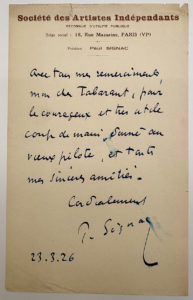 Société des Artistes Indépendants
RECONNUE D'UTILITÉ PUBLIQUE
Siège social : 18, Rue Mazarine, PARIS (VIe)
Président : Paul SIGNAC
Avec tous mes remerciements,
mon cher Tabarant, pour
le courageux et très utile
coup de main donné au
vieux pilote, et toutes
mes sincères amitiés.
Cordialement
P. Signac
23.3.26